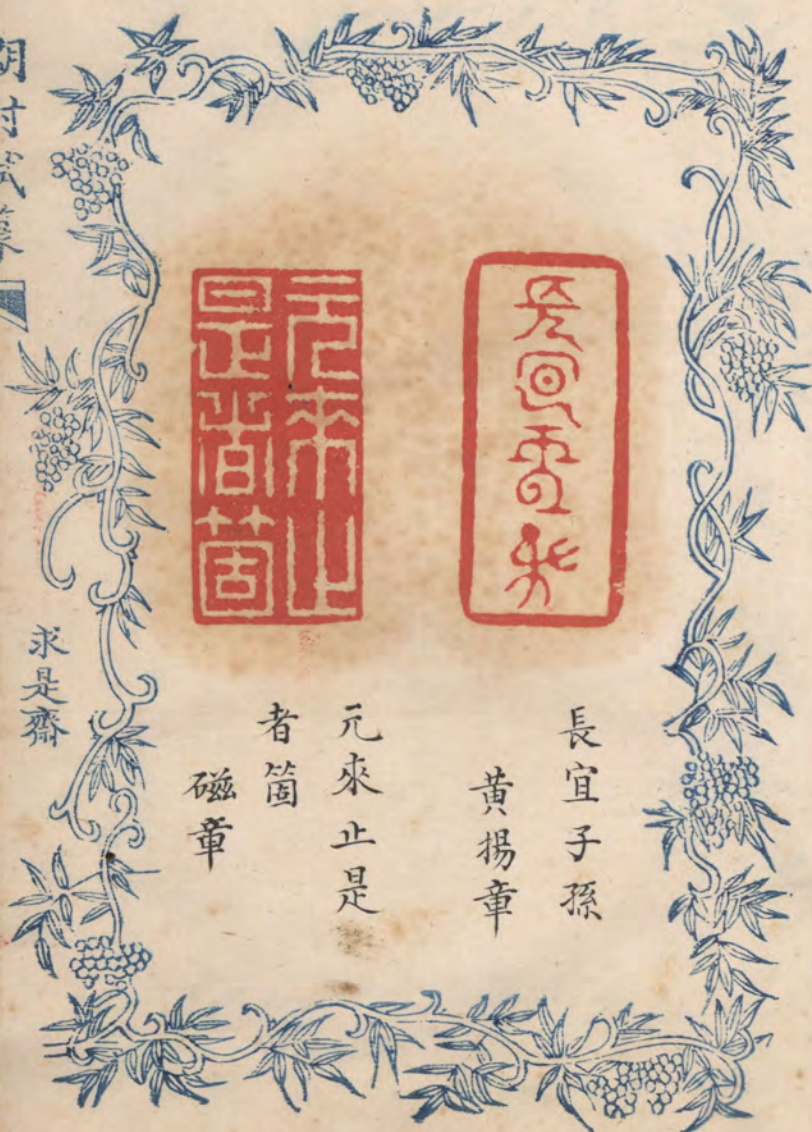 長宜子孫
元來止
是者箇
長宜子孫
黃揚章
元來止是
者箇
磁章
求是齋